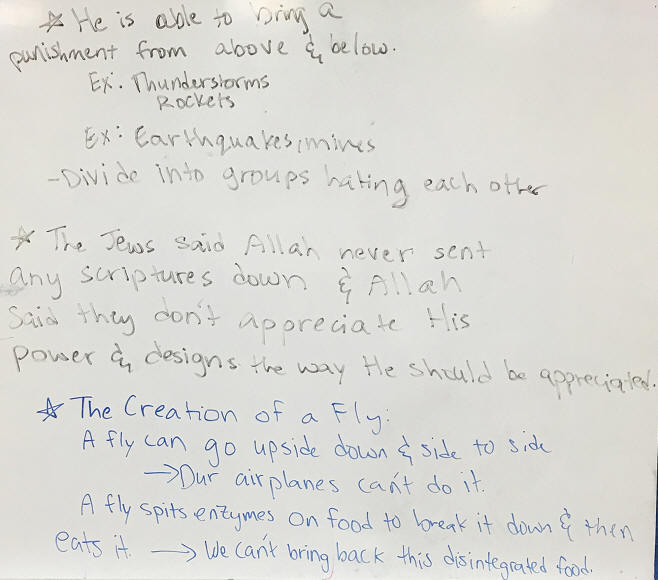 ☆ He is able to bring a
punishment from above & below.
Ex: Thunderstorms
Rockets
Ex: Earthquakes, mines
- Divide into groups hating each other
☆ The Jews said Allah never sent
any scriptures down & Allah
said they don't appreciate His
power & designs the way He should be appreciated.
☆ The Creation of a Fly:
A fly can go upside down & side to side
→ Our airplanes can't do it.
A fly spits enzymes on food to break it down & then
eats it. → We can't bring back this disintegrated food.